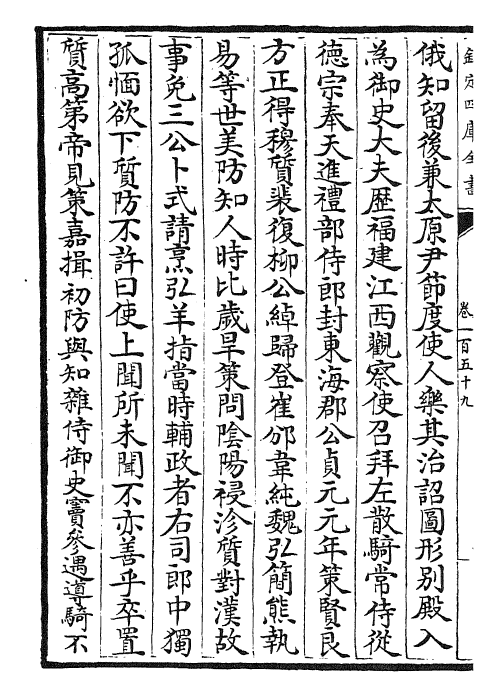 欽定四庫全書
卷一百五十九
俄知留後兼太原尹節度使人樂其治詔圖形别殿入
為御史大夫歴福建江西觀察使召拜左散騎常侍從
徳宗奉天進禮部侍郎封東海郡公貞元元年策賢良
方正得穆質裴復柳公綽歸登崔邠韋純魏弘簡熊執
易等世美防知人時比歲旱策問陰陽祲沴質對漢故
事免三公卜式請烹弘羊指當時輔政者右司郎中獨
孤愐欲下質防不許曰使上聞所未聞不亦善乎卒置
質高第帝見策嘉揖初防與知雜侍御史竇參遇導騎不